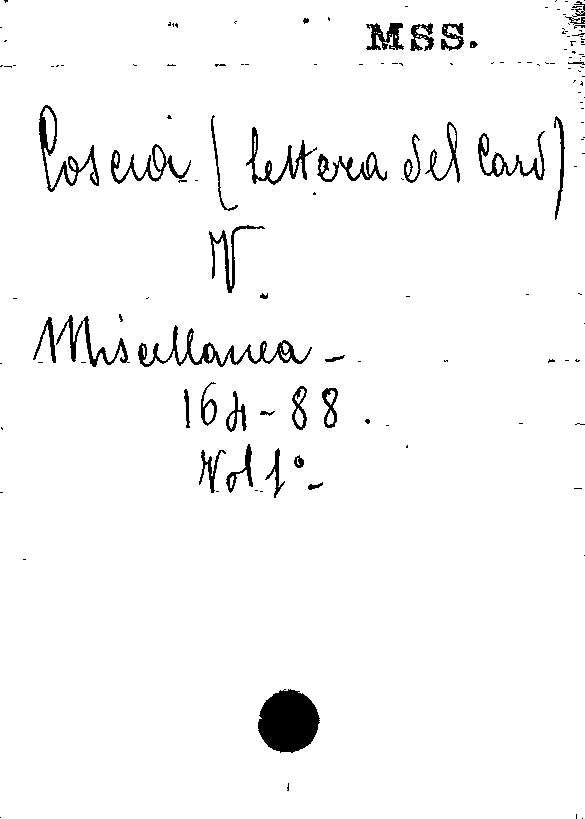 MSS.
Coscia (Lettera del Card)
V.
Miscellanea -
164-88.
Vol 1° -